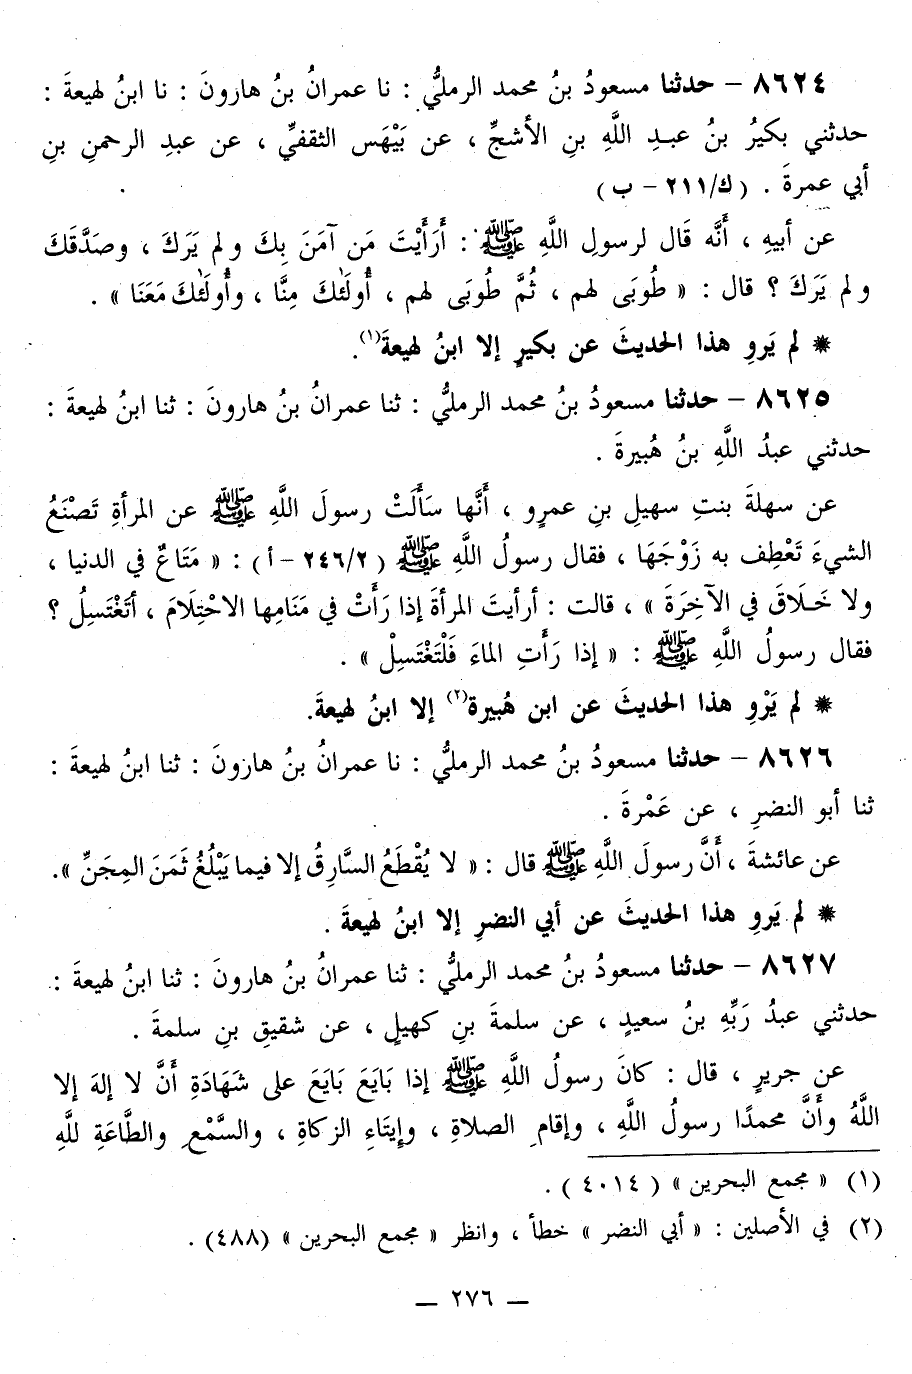 ٨٦٢٤ – حدثنا مسعودُ بنُ محمد الرمليُّ : نا عمرانُ بنُ هارونَ : نا ابنُ لهيعةَ :
حدثني بكيرُ بنُ عبدِ اللَّهِ بنِ الأشجِّ ، عن بَيْهَس الثقفيِّ ، عن عبدِ الرحمنِ بنِ
أبي عمرةَ . (ك/٢١١ – ب)
عن أبيهِ ، أَنَّه قال لرسولِ اللَّهِ ﷺ : أَرَأَيْتَ مَن آمَنَ بِكَ ولم يَرَكَ ، وصَدَّقَكَ
ولم يَرَكَ ؟ قال : « طُوبَى لهم ، ثُمَّ طُوبَى لهم ، أُولَئكَ مِنَّا ، وأُولَئكَ مَعَنَا » .
* لم يَروِ هذا الحديثَ عن بكيرٍ إلا ابنُ لهيعةَ(١).
٨٦٢٥ – حدثنا مسعودُ بنُ محمد الرمليُّ : ثنا عمرانُ بنُ هارونَ : ثنا ابنُ لهيعةَ :
حدثني عبدُ اللَّهِ بنُ هُبيرةَ .
عن سهلةَ بنتِ سهيلِ بنِ عمرٍو ، أَنَّها سَأَلَتْ رسولَ اللَّهِ ﷺ عن المرأةِ تَصْنَعُ
الشيءَ تَعْطِف به زَوْجَهَا ، فقال رسولُ اللَّهِ ﷺ (٢٤٦/٢ – أ) : « مَتَاعٌ في الدنيا ،
ولا خَلَاقَ في الآخِرَةَ » ، قالت : أرأيتَ المرأةَ إذا رَأَتْ في مَنَامِها الاحْتِلَامَ ، أتَغْتَسِلُ ؟
فقال رسولُ اللَّهِ ﷺ : « إذا رَأَتِ الماءَ فَلْتَغْتَسِلْ » .
* لم يَرْوِ هذا الحديثَ عن ابن هُبيرة(٢) إلا ابنُ لهيعةَ.
٨٦٢٦ – حدثنا مسعودُ بنُ محمد الرمليُّ : نا عمرانُ بنُ هارونَ : ثنا ابنُ لهيعةَ :
ثنا أبو النضرِ ، عن عَمْرةَ .
عن عائشةَ ، أَنَّ رسولَ اللَّهِ ﷺ قال : « لا يُقْطَعُ السَّارِقُ إلا فيما يَبْلُغُ ثَمَنَ المِجَنِّ ».
* لم يَروِ هذا الحديثَ عن أبي النضرِ إلا ابنُ لهيعةَ .
٨٦٢٧ – حدثنا مسعودُ بنُ محمد الرمليُّ : ثنا عمرانُ بنُ هارونَ : ثنا ابنُ لهيعةَ :
حدثني عبدُ رَبِّهِ بنُ سعيدٍ ، عن سلمةَ بنِ كهيلٍ ، عن شقيقِ بنِ سلمةَ .
عن جريرٍ ، قال : كانَ رسولُ اللَّهِ ﷺ إذا بَايَعَ بَايَعَ على شَهَادَةِ أَنَّ لا إلهَ إلا
اللَّهُ وأَنَّ محمدًا رسولُ اللَّهِ ، وإقامِ الصلاةِ ، وإيتَاءِ الزكاةِ ، والسَّمْعِ والطَّاعَةِ للَّهِ
(١) « مجمع البحرين » (٤٠١٤) .
(٢) في الأصلين : « أبي النضر » خطأ ، وانظر « مجمع البحرين » (٤٨٨) .
— ٢٧٦ —